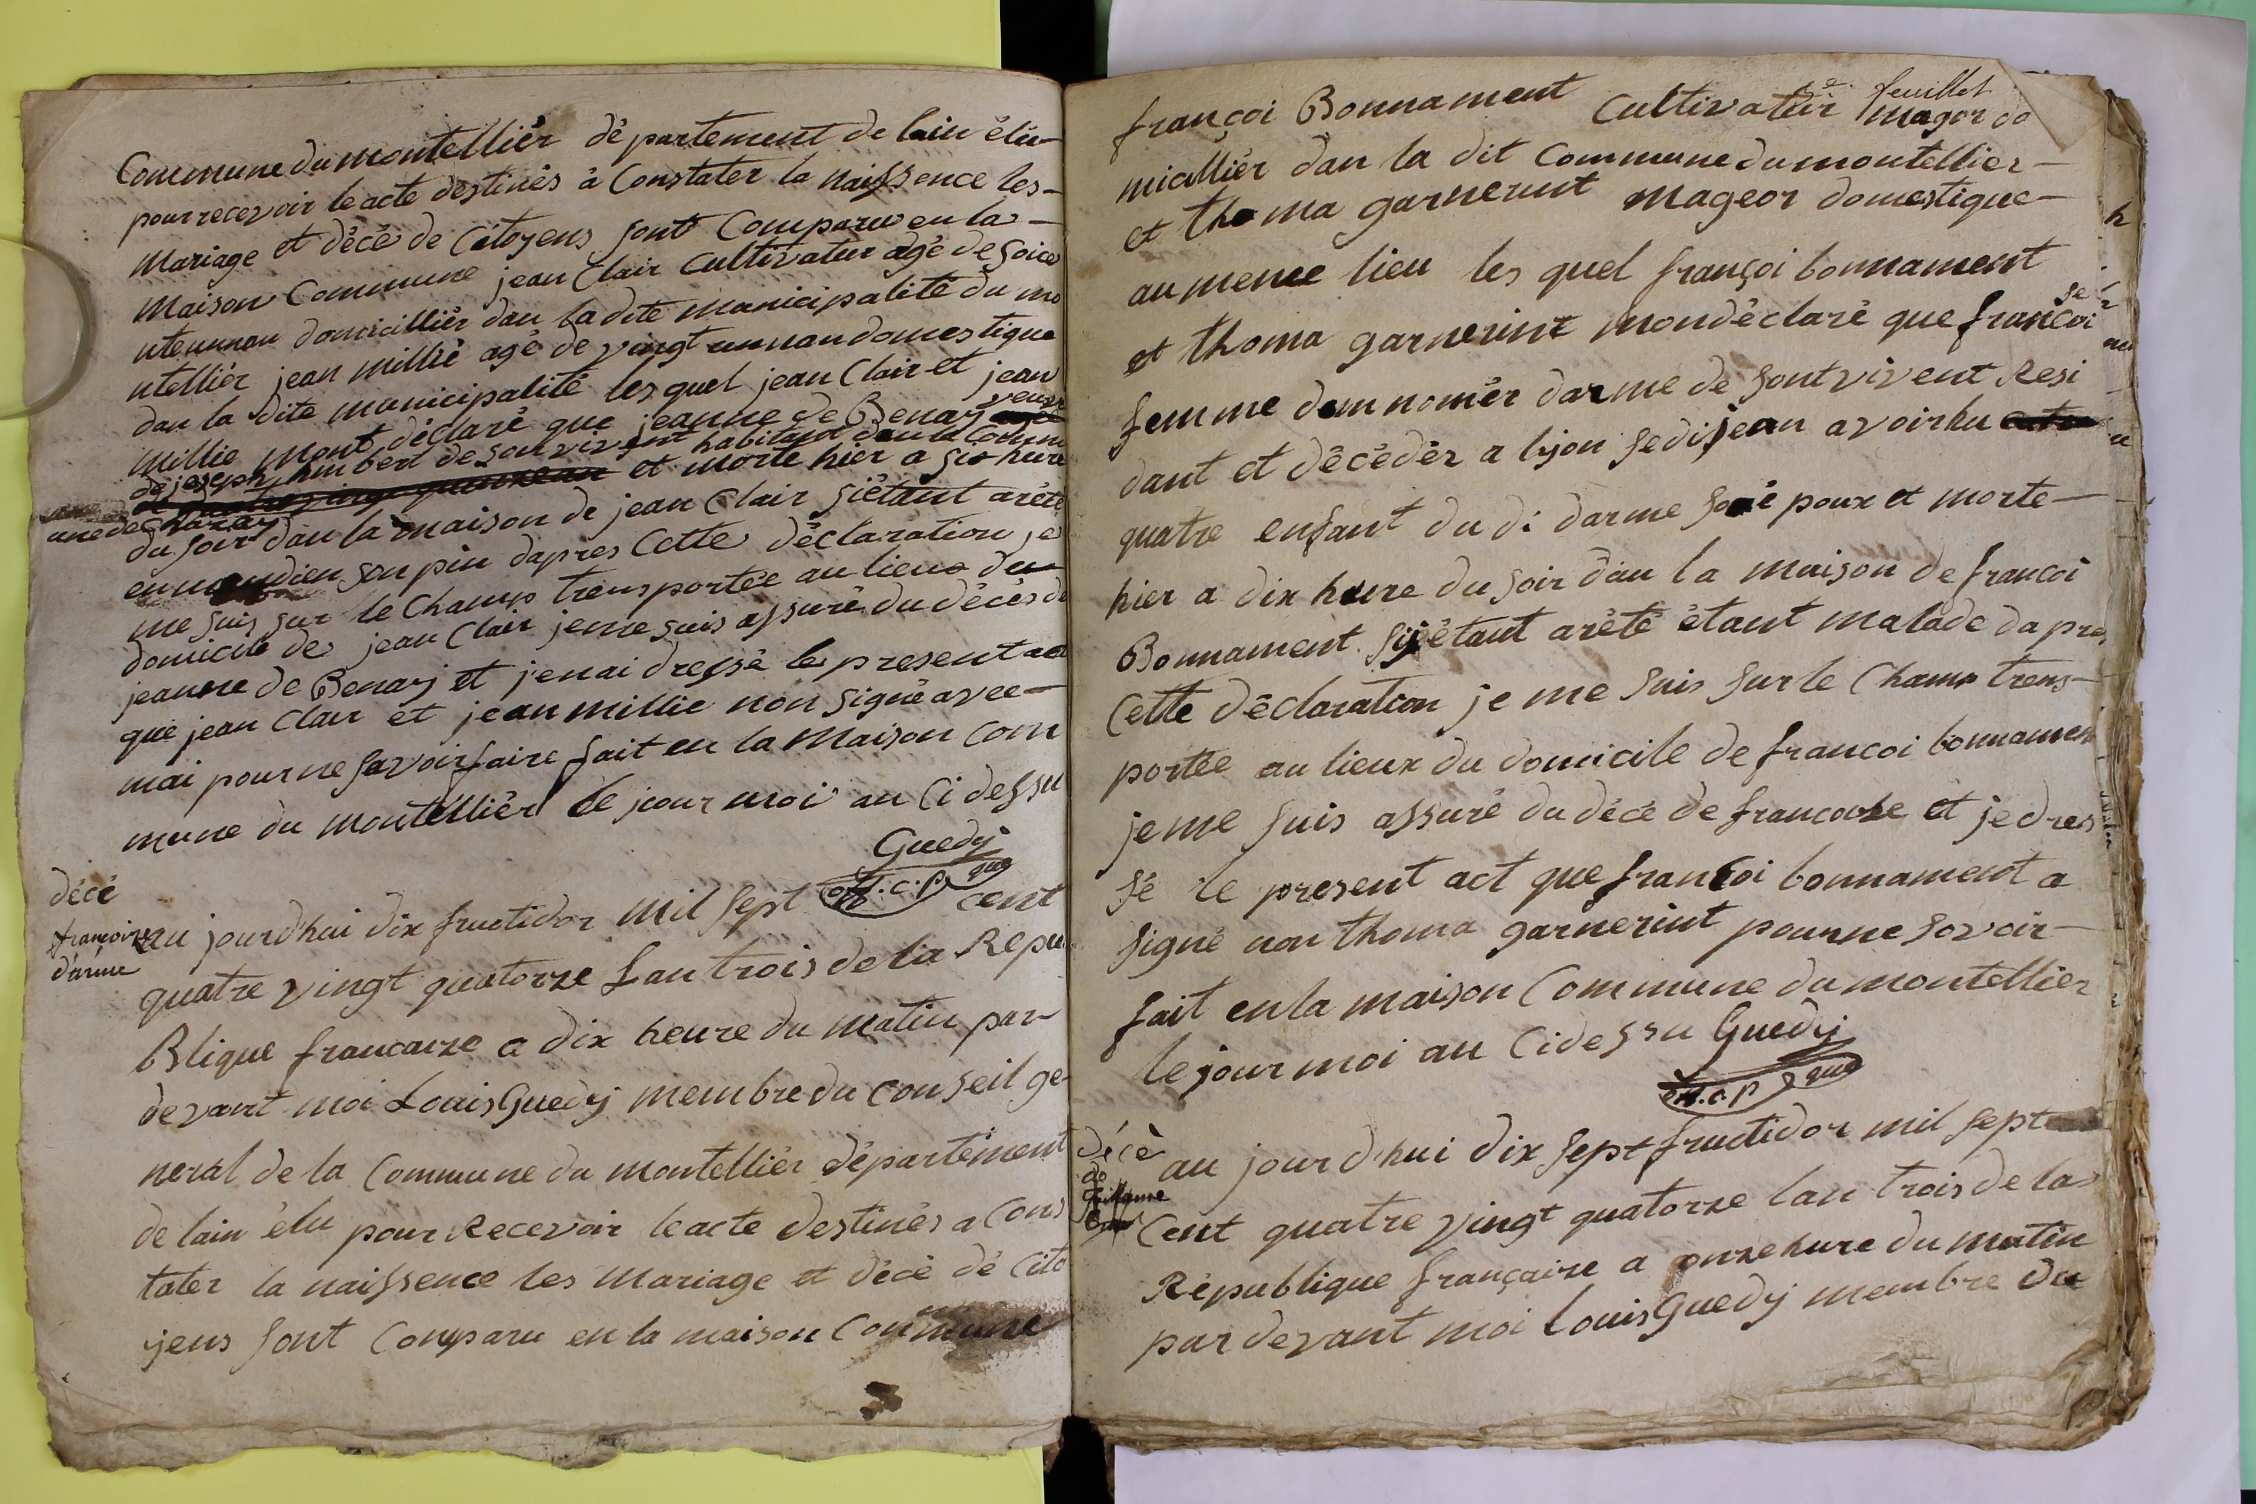 Commune du montelliér dé partement de lain élu
pour recevoir le acte destinés à Constater la naissence les
Mariage et décé de Citoyens sont Comparu en la
Maison Commune jean Clair Cultivateur agé de soice
nteunnan domicilliér dan la dite municipalité du mo
ntelliér jean millié agé de vingt unnan domestique
dan la dite municipalité les quel jean Clair et jean
millie mont déclaré que jeanne de Benaÿ veuve
de joseph humbert de son vivent habitant dan la Comm
une de Charay et morte hier a sis heure
du soir dan la maison de jean Clair sietant arété
en mandien son pin dapres Cette déclaration je
me suis sur le Champ trensportée au lieu du
domicile de jean Clair je me suis assuré du décés de
jeanne de Benaÿ et jenai dressé le present act
que jean Clair et jean millie non signé avec
mai pour ne savoir faire fait en la Maison Com
mune du montelliér le jour moi au Ci dessu
Guedÿ
off.c.p
décé
francoise
d'arme
au jourd'hui dix fructidor mil sept cent
quatre vingt quatorze lan trois de la Repu
Blique francaize a dix heure du matin par
devant moi Louis Guedÿ membre du conseil ge
neral de la Commune du montelliér département
de lain élu pour Recevoir le acte destinés a Cons
tater la naissence les mariage et décé dé Cito
ÿens sont Comparu en la maison Commune
feuillet
françoi Bonnament Cultivateur magor do
micilliér dan la dit Commune du montellier
et thoma garnerint mageor domestique
au meme lieu les quel françoi bonnament
et thoma garnerint mon déclaré que françoi se
femme dem nomér darme de sont vivent Resi
dant et décédér a lÿon se di jean avoir hu
quatre enfant du di darme son é poux et morte
hier a dix heure du soir dan la maison de francoi
Bonnament sÿ étant arété étant malade dapres
Cette déclaration je me suis sur le Champ trens
portée au lieux du domicile de francoi bonnament
je me suis assuré du décé de francoise et je dres
sé le present act que francoi bonnament a
signé non thoma garnerint pour ne savoir
fait en la maison Commune du montellier
le jour moi au Cidessu Guedÿ
off.c.p
décè
de
au jourd'hui dix sept fructidor mil sept
Cent quatre vingt quatorze lan trois de la
République françaize a onze hure du matin
par devant moi Louis Guedÿ membre du